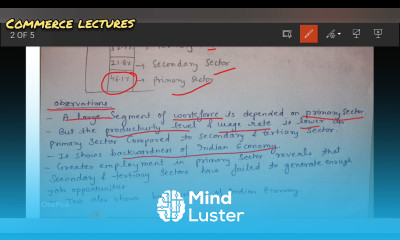 COMMERCE LECTURES
2 OF 5
Secondary Sector
46.17 → Primary Sector
Observations
- A large segment of workforce is depended on primary Sector
- But the productivity level & wage rate is lower in
Primary Sector compared to secondary & tertiary sector.
- It shows backwardness of Indian Economy.
- Greater employment in primary sector reveals that
Secondary & tertiary Sectors have failed to generate enough
job opportunities
also shows Indian Economy
Mind
Luster